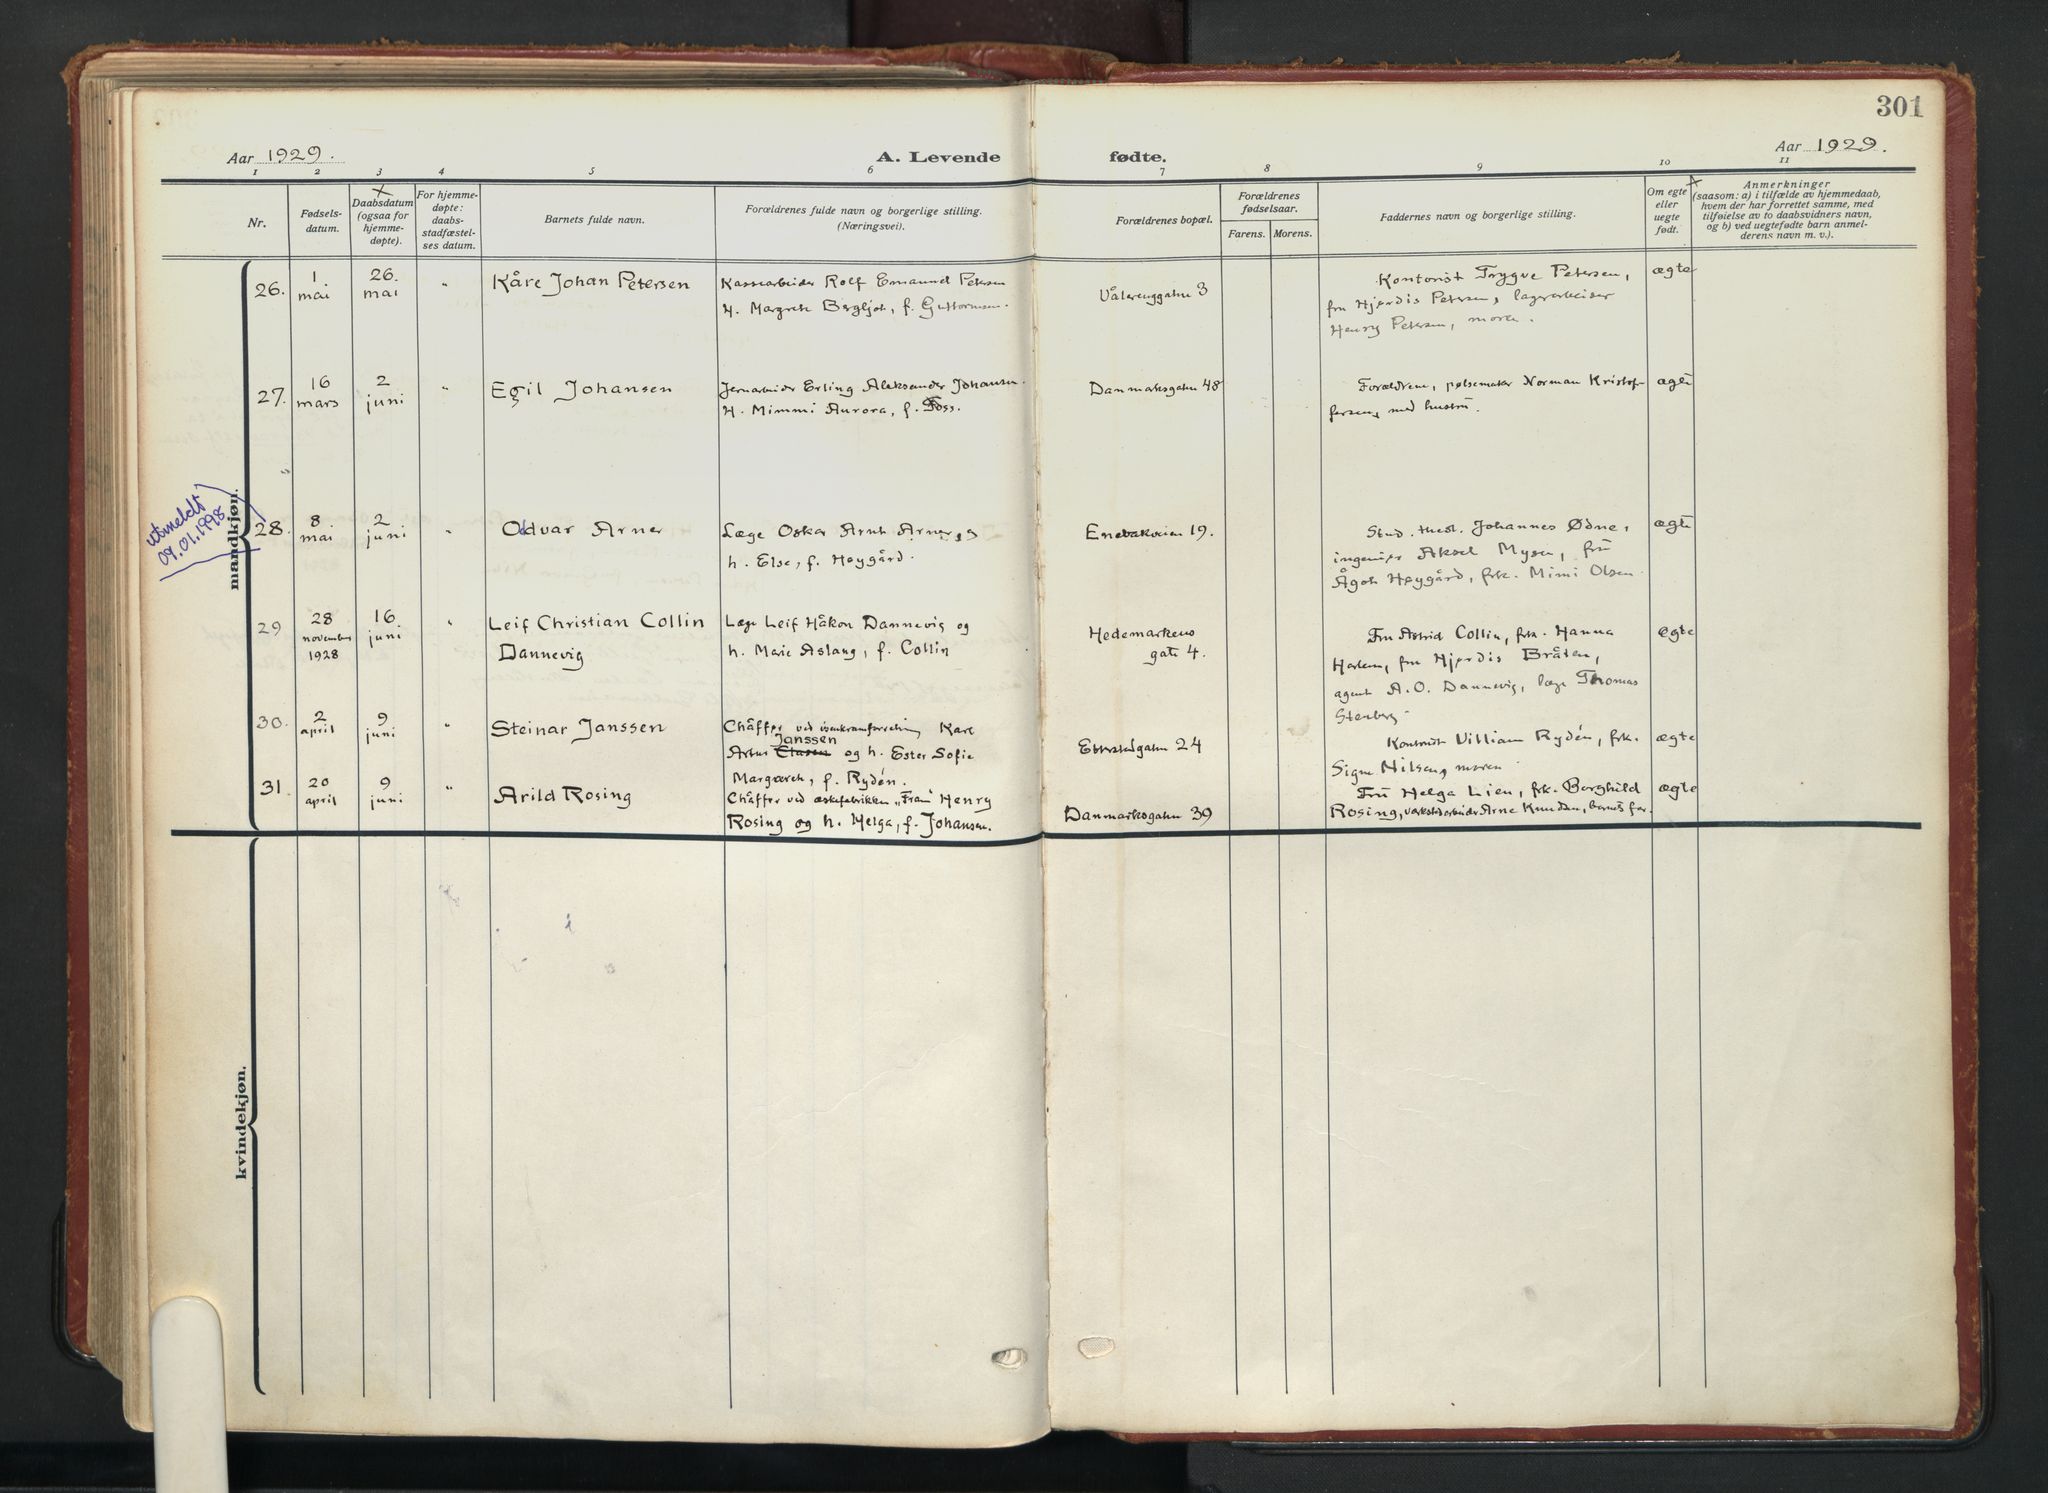 301
Aar 1929.
A. Levende
fødte.
Aar 1929.
1 2 3 4 5 6 7 8 9 10 11
Nr.
Fødsels-
datum.
Daabsdatum
(ogsaa for
hjemme-
døpte).
For hjemme-
døpte:
daabs-
stadfæstel-
ses datum.
Barnets fulde navn.
Forældrenes fulde navn og borgerlige stilling.
(Næringsvei).
Forældrenes bopæl.
Forældrenes
fødselsaar.
Farens. Morens.
Faddernes navn og borgerlige stilling.
Om egte
eller
uegte
født.
Anmerkninger
(saasom: a) i tilfælde av hjemmedaab,
hvem der har forrettet samme, med
tilføielse av to daabsvidners navn,
og b) ved uegtefødte barn anmel-
derens navn m. v.).
mandkjøn.
26.
1
mai
26.
mai
"
Kåre Johan Petersen
Rolf Emanuel Petersen
H. Margrete Bergljot, f. Guttormsen.
Vålerenggatm 3
Kontorist Trygve Petersen,
fru Hjørdis Petersen, lagerarbeiser
Henry Petersen, moren.
ægte
27.
16
mars
2
juni
"
Egil Johansen
Jernarbeider Erling Aleksander Johansen.
H. Mimmi Aurora, f. Foss.
Danmarksgatn 48
Forældrene, pølsemaker Norman Kristof-
fersen, med hustru.
ægte
"
utmeldt
09.01.1998
28.
8
mai
2
juni
"
Odvar Arner
Læge Oskar Arnt Arner, og
h. Else, f. Høygård.
Enebakveien 19.
Stud. theol. Johannes Ødne,
ingeniør Aksel Mysen, frü
Ågot Høygård, frk. Mimi Olsen
ægte
29
28
november
1928
16.
juni
"
Leif Christian Collin
Dannevig
Læge Leif Håkon Dannevig og
h. Marie Aslaug, f. Collin
Hedemarkens
gate 4.
Fru Astrid Collin, frk. Hanna
Harlem, fru Hjørdis Bråten,
agent A. O. Dannevig, læge Thomas
Stenberg.
ægte
30.
2
april
9
juni
"
Steinar Janssen
Chäffør ved isenkramforretning Kare
Janssen
Artur og h. Ester Sofie
Margareth, f. Rydén.
Etterstadgatn 24
Kontorist William Rydén, frk.
Signe Nilsen, moren
ægte
31.
20
april
9
juni
"
Arild Rosing
Chäffør ved æskefabrikken „Fram" Henry
Rosing og h. Helga, f. Johansen.
Danmarksgatn 39
Frü Helga Lien, frk. Borghild
Rosing, verkstedarbeider Arne Knudsen, barnets far.
ægte
kvindekjøn.